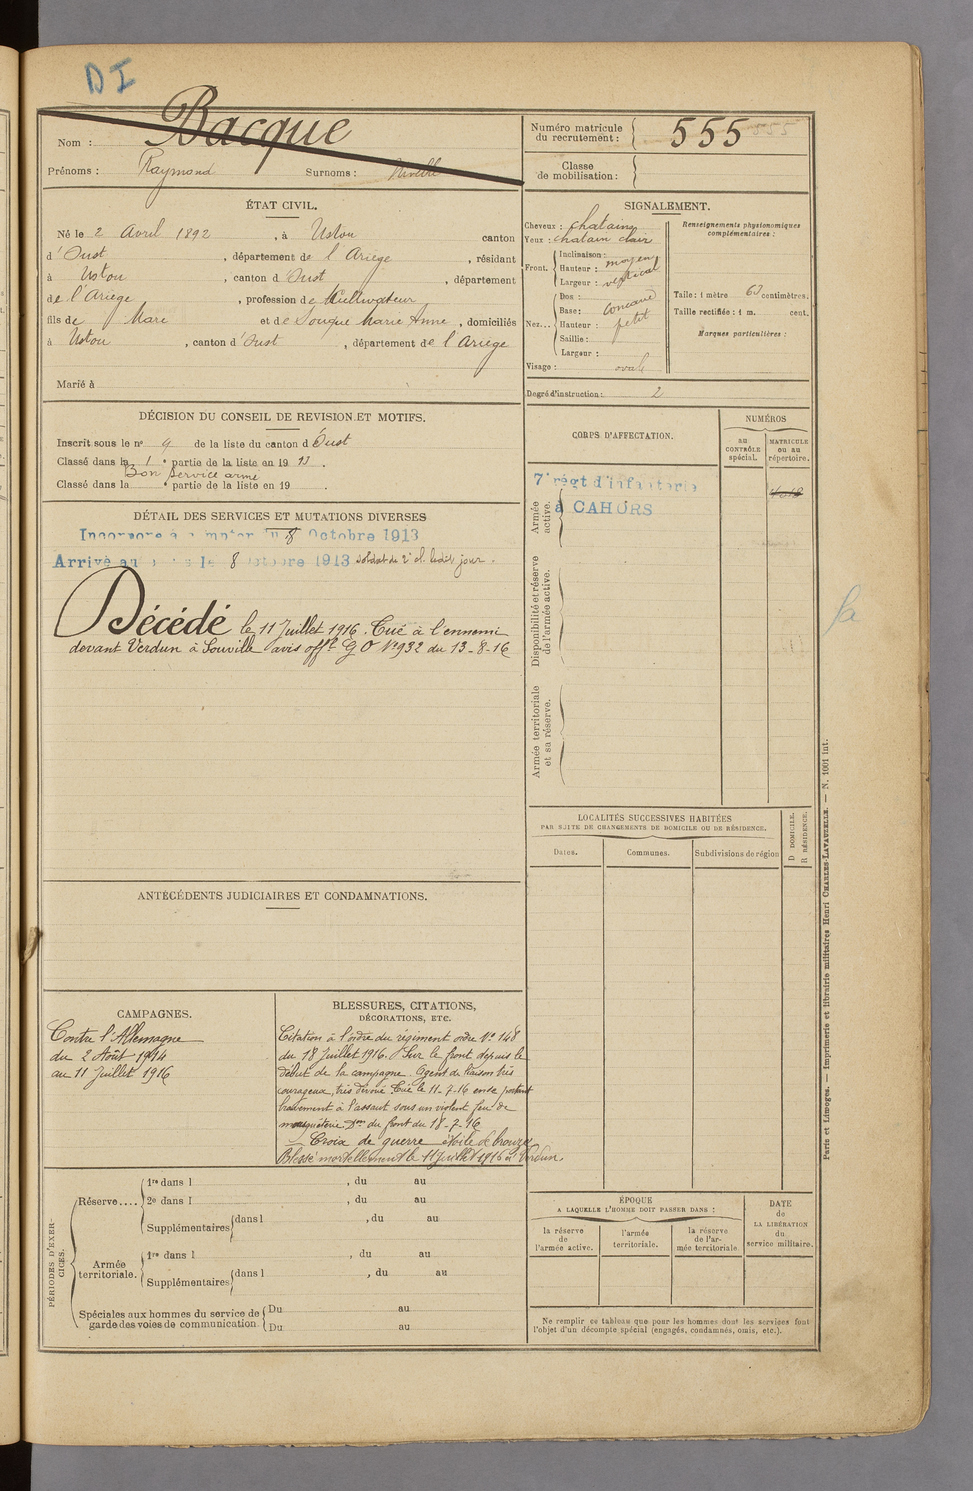 DI
Nom : Bacque
Prénoms : Raymond Surnoms :
Numéro matricule du recrutement : 555
Classe de mobilisation :
ÉTAT CIVIL.
Né le 2 Avril 1892, à Ustou canton
d'Oust, département de l'Ariège, résidant
à Ustou, canton d'Oust, département
de l'Ariège, profession de Cultivateur
fils de Marc et de Souque Marie Anne, domiciliés
à Ustou, canton d'Oust, département de l'Ariège
Marié à
SIGNALEMENT.
Cheveux : chatains
Yeux : chatain clair
Front. Inclinaison : moyen
Hauteur : vertical
Largeur :
Nez... Dos : concave
Base : petit
Hauteur :
Saillie :
Largeur :
Visage : oval
Renseignements physionomiques complémentaires :
Taille : 1 mètre 63 centimètres.
Taille rectifiée : 1 m. cent.
Marques particulières :
Degré d'instruction : 2
DÉCISION DU CONSEIL DE REVISION ET MOTIFS.
Inscrit sous le n° 9 de la liste du canton d'Oust
Classé dans la 1e partie de la liste en 1913.
Bon service armé
Classé dans la e partie de la liste en 19 .
DÉTAIL DES SERVICES ET MUTATIONS DIVERSES
Incorporé à compter du 8 Octobre 1913
Arrivé au corps le 8 Octobre 1913 soldat de 2e cl. ledit jour.
Décédé le 11 Juillet 1916. Tué à l'ennemi
devant Verdun à Souville avis offel G O N° 932 du 13-8-16
CORPS D'AFFECTATION.
NUMÉROS
au CONTRÔLE spécial.
MATRICULE ou au répertoire.
Armée active.
7e régt d'infanterie
à CAHORS
Disponibilité et réserve de l'armée active.
Armée territoriale et sa réserve.
LOCALITÉS SUCCESSIVES HABITÉES
PAR SUITE DE CHANGEMENTS DE DOMICILE OU DE RÉSIDENCE.
Dates.
Communes.
Subdivisions de région
D DOMICILE.
R RÉSIDENCE.
ANTÉCÉDENTS JUDICIAIRES ET CONDAMNATIONS.
CAMPAGNES.
Contre l'Allemagne
du 2 Août 1914
au 11 Juillet 1916
BLESSURES, CITATIONS,
DÉCORATIONS, ETC.
Citation à l'ordre du régiment ordre N° 148
du 18 Juillet 1916. Sur le front depuis le
début de la campagne. Agent de liaison très
courageux, très dévoué. Tué le 11-7-16 en se portant
bravement à l'assaut sous un violent feu de
mousquèterie. Don du front du 18-7-16
Croix de guerre étoile de bronze
Blessé mortellement le 11 Juillet 1916 à Verdun.
PÉRIODES D'EXERCICES.
Réserve.... 1re dans l , du au
2e dans l , du au
Supplémentaires dans l , du au
Armée territoriale. 1re dans l , du au
Supplémentaires dans l , du au
Spéciales aux hommes du service de garde des voies de communication.
Du au
Du au
ÉPOQUE
A LAQUELLE L'HOMME DOIT PASSER DANS :
la réserve de l'armée active.
l'armée territoriale.
la réserve de l'armée territoriale.
DATE de LA LIBÉRATION du service militaire.
Ne remplir ce tableau que pour les hommes dont les services font
l'objet d'un décompte spécial (engagés, condamnés, omis, etc.).
Paris et Limoges. — Imprimerie et librairie militaires Henri CHARLES-LAVAUZELLE. — N. 1001 int.